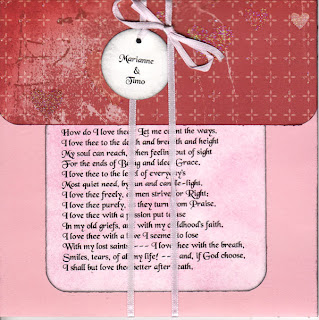 Marianne
&
Timo
How do I love thee? Let me count the ways,
I love thee to the depth and breath and height
My soul can reach, when feeling out of sight
For the ends of Being and ideal Grace,
I love thee to the level of everyday's
Most quiet need, by sun and candle-light,
I love thee freely, as men strive for Right;
I love thee purely, as they turn from Praise,
I love thee with a passion put to use
In my old griefs, and with my childhood's faith,
I love thee with a love I seemed to lose
With my lost saints --- I love thee with the breath,
Smiles, tears, of all my life! --- and, if God choose,
I shall but love thee better after death,